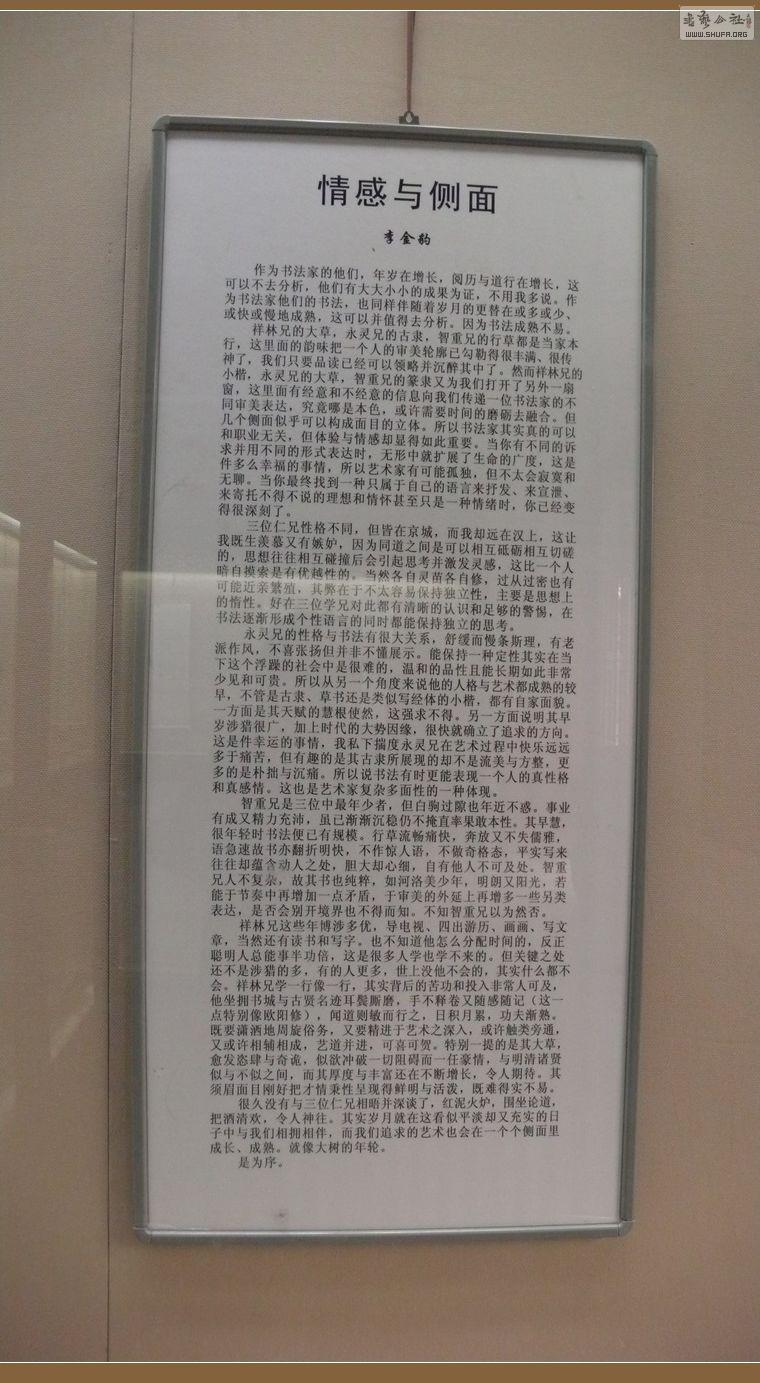 书艺公社
WWW.SHUFA.ORG
情感与侧面
李金豹
作为书法家的他们，年岁在增长，阅历与道行在增长，这
可以不去分析，他们有大大小小的成果为证，不用我多说。作
为书法家他们的书法，也同样伴随着岁月的更替在或多或少、
或快或慢地成熟，这可以并值得去分析。因为书法成熟不易。
祥林兄的大草，永灵兄的古隶，智重兄的行草都是当家本
行，这里面的韵味把一个人的审美轮廓已勾勒得很丰满、很传
神了，我们只要品读已经可以领略并沉醉其中了。然而祥林兄的
小楷，永灵兄的大草，智重兄的篆隶又为我们打开了另外一扇
窗，这里面有经意和不经意的信息向我们传递一位书法家的不
同审美表达，究竟哪是本色，或许需要时间的磨砺去融合。但
几个侧面似乎可以构成面目的立体。所以书法家其实真的可以
和职业无关，但体验与情感却显得如此重要。当你有不同的诉
求并用不同的形式表达时，无形中就扩展了生命的广度，这是
件多么幸福的事情，所以艺术家有可能孤独，但不太会寂寞和
无聊。当你最终找到一种只属于自己的语言来抒发、来宣泄、
来寄托不得不说的理想和情怀甚至只是一种情绪时，你已经变
得很深刻了。
三位仁兄性格不同，但皆在京城，而我却远在汉上，这让
我既生羡慕又有嫉妒，因为同道之间是可以相互砥砺相互切磋
的，思想往往相互碰撞后会引起思考并激发灵感，这比一个人
暗自摸索是有优越性的。当然各自灵苗各自修，过从过密也有
可能近亲繁殖，其弊在于不太容易保持独立性，主要是思想上
的惰性。好在三位学兄对此都有清晰的认识和足够的警惕，在
书法逐渐形成个性语言的同时都能保持独立的思考。
永灵兄的性格与书法有很大关系，舒缓而慢条斯理，有老
派作风，不喜张扬但并非不懂展示。能保持一种定性其实在当
下这个浮躁的社会中是很难的，温和的品性且能长期如此非常
少见和可贵。所以从另一个角度来说他的人格与艺术都成熟的较
早，不管是古隶、草书还是类似写经体的小楷，都有自家面貌。
一方面是其天赋的慧根使然，这强求不得。另一方面说明其早
岁涉猎很广，加上时代的大势因缘，很快就确立了追求的方向。
这是件幸运的事情，我私下揣度永灵兄在艺术过程中快乐远远
多于痛苦，但有趣的是其古隶所展现的却不是流美与方整，更
多的是朴拙与沉痛。所以说书法有时更能表现一个人的真性格
和真感情。这也是艺术家复杂多面性的一种体现。
智重兄是三位中最年少者，但白驹过隙也年近不惑。事业
有成又精力充沛，虽已渐渐沉稳仍不掩直率果敢本性。其早慧，
很年轻时书法便已有规模。行草流畅痛快，奔放又不失儒雅，
语急速故书亦翻折明快，不作惊人语，不做奇格态，平实写来
往往却蕴含动人之处，胆大却心细，自有他人不可及处。智重
兄人不复杂，故其书也纯粹，如河洛美少年，明朗又阳光，若
能于节奏中再增加一点矛盾，于审美的外延上再增多一些另类
表达，是否会别开境界也不得而知。不知智重兄以为然否。
祥林兄这些年博涉多优，导电视、四出游历、画画、写文
章，当然还有读书和写字。也不知道他怎么分配时间的，反正
聪明人总能事半功倍，这是很多人学也学不来的。但关键之处
还不是涉猎的多，有的人更多，世上没他不会的，其实什么都不
会。祥林兄学一行像一行，其实背后的苦功和投入非常人可及，
他坐拥书城与古贤名迹耳鬓厮磨，手不释卷又随感随记（这一
点特别像欧阳修），闻道则敏而行之，日积月累，功夫渐熟。
既要潇洒地周旋俗务，又要精进于艺术之深入，或许触类旁通，
又或许相辅相成，艺道并进，可喜可贺。特别一提的是其大草，
愈发恣肆与奇诡，似欲冲破一切阻碍而一任豪情，与明清诸贤
似与不似之间，而其厚度与丰富还在不断增长，令人期待。其
须眉面目刚好把才情秉性呈现得鲜明与活泼，既难得实不易。
很久没有与三位仁兄相晤并深谈了，红泥火炉，围坐论道，
把酒清欢，令人神往。其实岁月就在这看似平淡却又充实的日
子中与我们相拥相伴，而我们追求的艺术也会在一个个侧面里
成长、成熟。就像大树的年轮。
是为序。